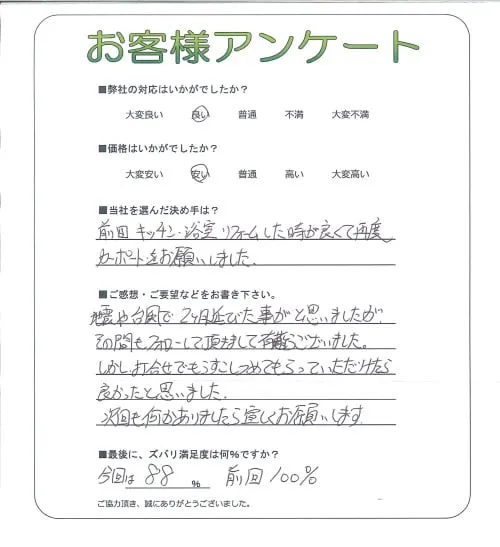 お客様アンケート
■弊社の対応はいかがでしたか？
大変良い 良い 普通 不満 大変不満
■価格はいかがでしたか？
大変安い 安い 普通 高い 大変高い
■当社を選んだ決め手は？
前回キッチン・浴室リフォームした時が良くて再度
カーポートをお願いしました。
■ご感想・ご要望などをお書き下さい。
地震や台風で2ヶ月延びた事がと思いましたが、
その間も、フォローして頂きまして有難うございました。
しかし打合せでもうすこしつめてもらっていただけたら
良かったと思いました。
次回も何かありましたら宜しくお願いします
■最後に、ズバリ満足度は何%ですか？
今回は 88 % 前回 100%
ご協力頂き、誠にありがとうございました。